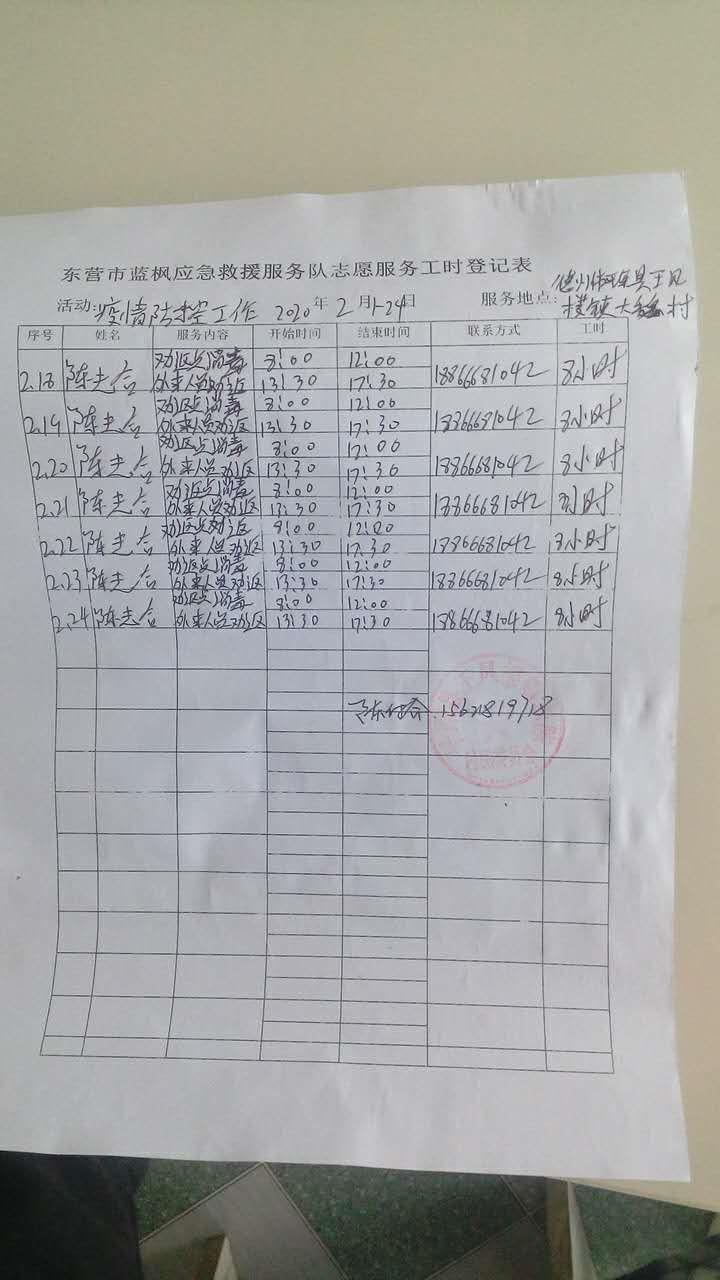 东营市蓝枫应急救援服务队志愿服务工时登记表
活动: 疫情防控工作 2020年2月1-24日 服务地点: 德州 王凤
楼镇大 村
序号 姓名 服务内容 开始时间 结束时间 联系方式 工时
劝返点消毒 8:00 12:00
2.18 陈光合 外来人员劝返 13:30 17:30 18866681042 8小时
劝返点消毒 8:00 12:00
2.19 陈光合 外来人员劝返 13:30 17:30 18866681042 8小时
劝返点消毒 8:00 12:00
2.20 陈光合 外来人员劝返 13:30 17:30 18866681042 8小时
劝返点消毒 8:00 12:00
2.21 陈光合 外来人员劝返 13:30 17:30 18866681042 8小时
劝返点劝返 8:00 12:00
2.22 陈光合 外来人员劝返 13:30 17:30 18866681042 8小时
劝返点消毒 8:00 12:00
2.23 陈光合 外来人员劝返 13:30 17:30 18866681042 8小时
劝返点消毒 8:00 12:00
2.24 陈光合 外来人员劝返 13:30 17:30 18866681042 8小时
陈 15621819718